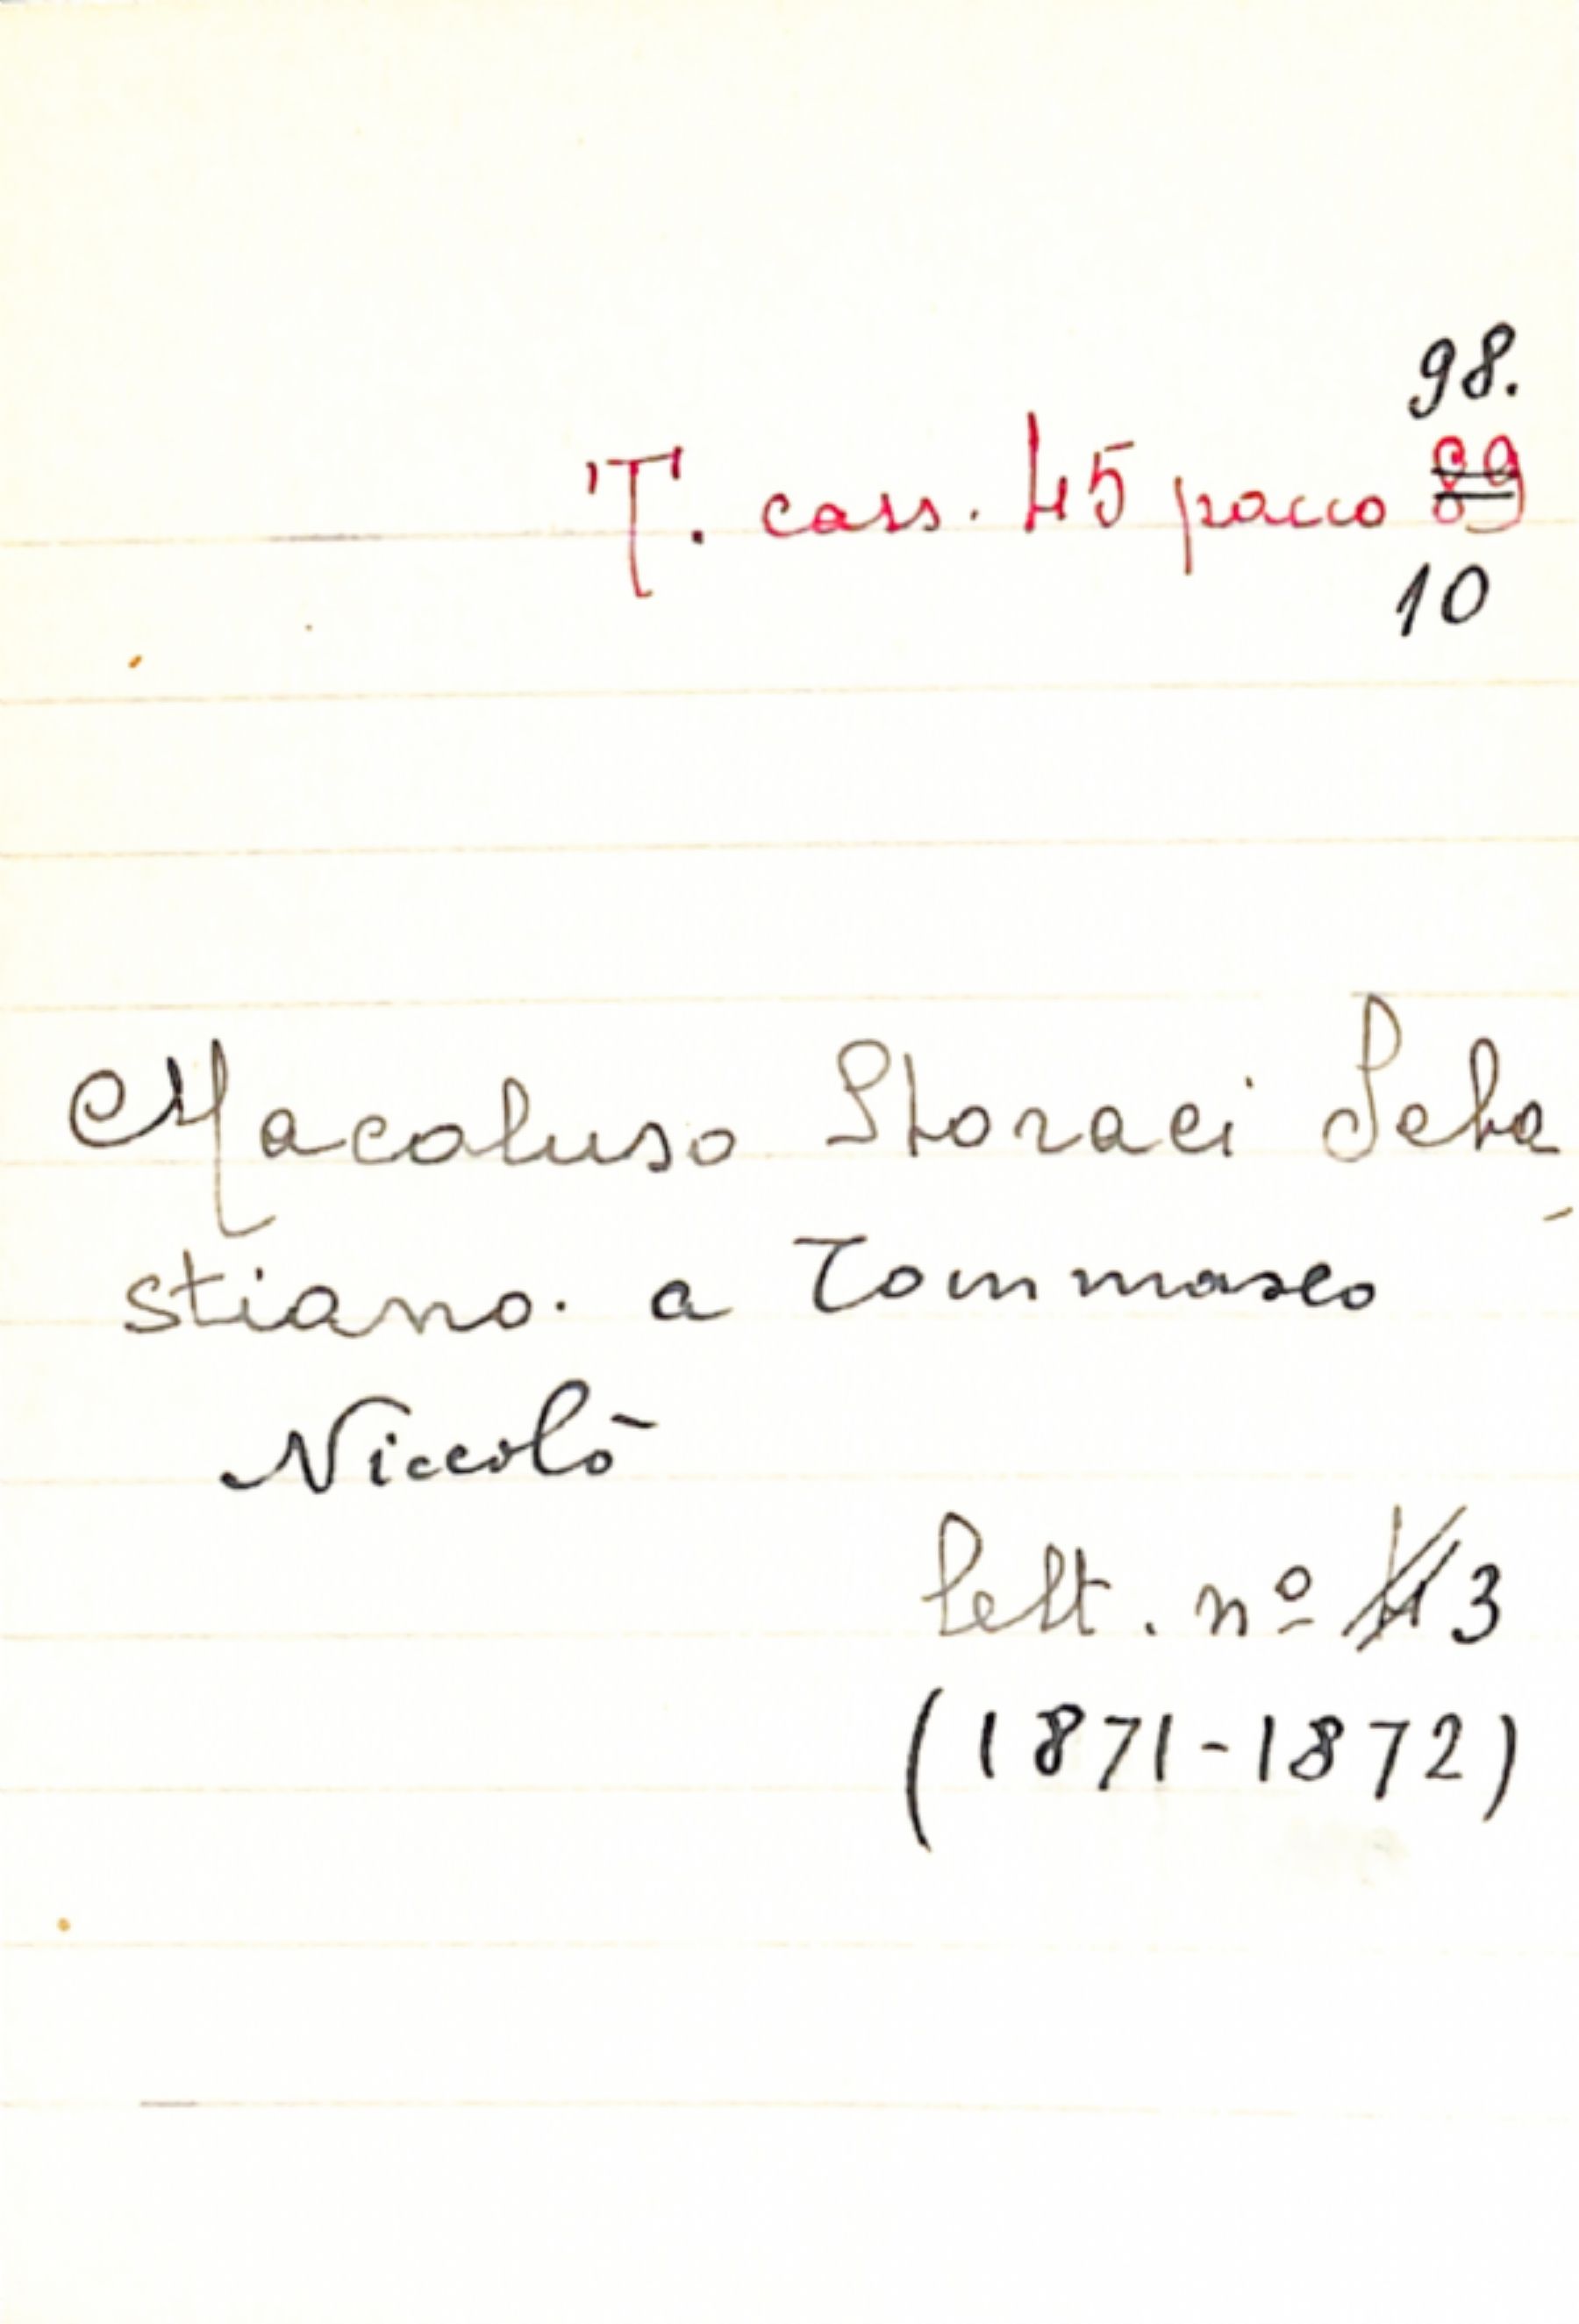 98.
T. cass. 45 pacco 89
10
Macaluso Storaci Seba
stiano. a Tommaseo
Niccolò
lett. nº 3
(1871-1872)